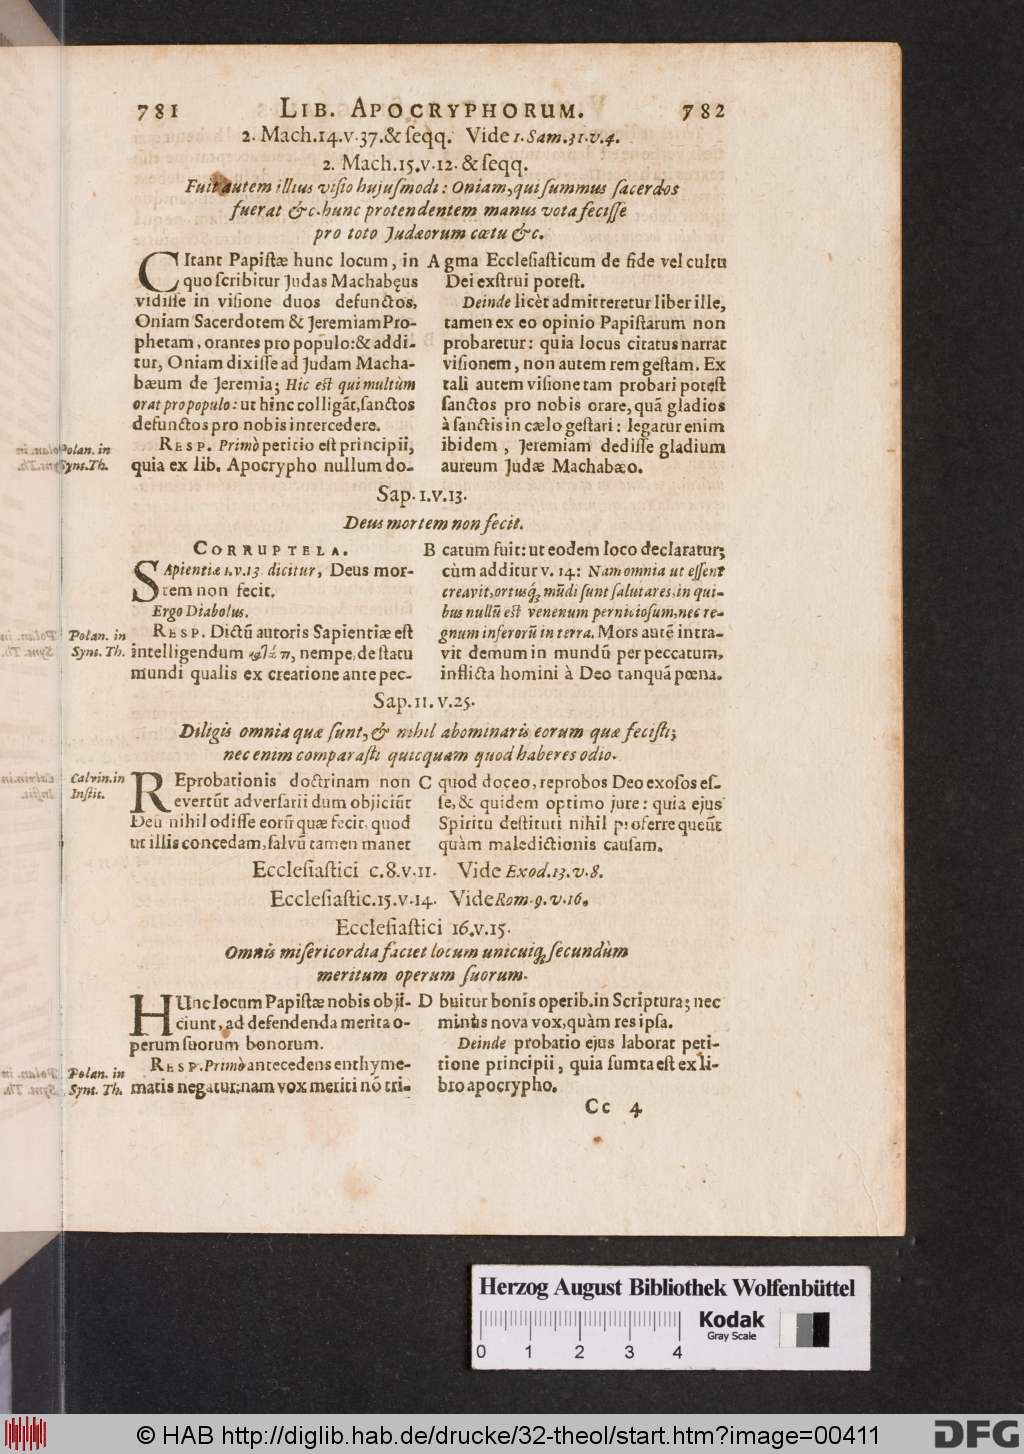 781 LIB. APOCRYPHORUM. 782
2. Mach.14.v.37.& ſeqq. Vide 1.Sam.31.v.4.
2. Mach.15.v.12.& ſeqq.
Fuit autem illius viſio hujuſmodi: Oniam, qui ſummus ſacerdos
fuerat &c. hunc protendentem manus vota feciſſe
pro toto Judæorum cœtu &c.
CItant Papiſtæ hunc locum, in
quo ſcribitur Judas Machabęus
vidiſſe in viſione duos defunctos,
Oniam Sacerdotem & Jeremiam Pro-
phetam, orantes pro populo: & addi-
tur, Oniam dixiſſe ad Judam Macha-
bæum de Jeremia; Hic eſt qui multùm
orat pro populo: ut hinc colligāt, ſanctos
defunctos pro nobis intercedere.
RESP. Primò petitio eſt principii,
quia ex lib. Apocrypho nullum do-
Polan. in
Synt. Th.
A gma Eccleſiaſticum de fide vel cultu
Dei exſtrui poteſt.
Deinde licèt admitteretur liber ille,
tamen ex eo opinio Papiſtarum non
probaretur: quia locus citatus narrat
viſionem, non autem rem geſtam. Ex
tali autem viſione tam probari poteſt
ſanctos pro nobis orare, quā gladios
à ſanctis in cælo geſtari: legatur enim
ibidem, Jeremiam dediſſe gladium
aureum Judæ Machabæo.
Sap. 1.v.13.
Deus mortem non fecit.
CORRUPTELA.
SApientiæ 1.v.13 dicitur, Deus mor-
tem non fecit.
Ergo Diabolus.
RESP. Dictū autoris Sapientiæ eſt
intelligendum , nempe, de ſtatu
mundi qualis ex creatione ante pec-
Polan. in
Synt. Th.
B catum fuit: ut eodem loco declaratur;
cùm additur v. 14: Nam omnia ut eſſent
creavit, ortusq́; mūdi ſunt ſalutares, in qui-
bus nullū eſt venenum pernicioſum, nec re-
gnum inferorū in terra. Mors autē intra-
vit demum in mundū per peccatum,
inflicta homini à Deo tanquā pœna.
Sap. 11. v.25.
Diligis omnia quæ ſunt, & nihil abominaris eorum quæ feciſti;
nec enim comparaſti quicquam quod haberes odio.
REprobationis doctrinam non
evertūt adverſarii dum objiciūt
Deū nihil odiſſe eorū quæ fecit, quod
ut illis concedam, ſalvū tamen manet
Calvin. in
Inſtit.
C quod doceo, reprobos Deo exoſos eſ-
ſe, & quidem optimo jure: quia ejus
Spiritu deſtituti nihil proferre queūt
quàm maledictionis cauſam.
Eccleſiaſtici c.8.v.11. Vide Exod.13.v.8.
Eccleſiaſtic.15.v.14. Vide Rom.9.v.16.
Eccleſiaſtici 16.v.15.
Omnis miſericordia faciet locum unicuiq; ſecundùm
meritum operum ſuorum.
HUnc locum Papiſtæ nobis obji-
ciunt, ad defendenda merita o-
perum ſuorum bonorum.
RESP. Primò antecedens enthyme-
matis negatur: nam vox meriti nō tri-
Polan. in
Synt. Th.
D buitur bonis operib. in Scriptura; nec
minùs nova vox, quàm res ipſa.
Deinde probatio ejus laborat peti-
tione principii, quia ſumta eſt ex li-
bro apocrypho.
Cc 4
Herzog August Bibliothek Wolfenbüttel
0 1 2 3 4
Kodak
Gray Scale
© HAB http://diglib.hab.de/drucke/32-theol/start.htm?image=00411
DFG